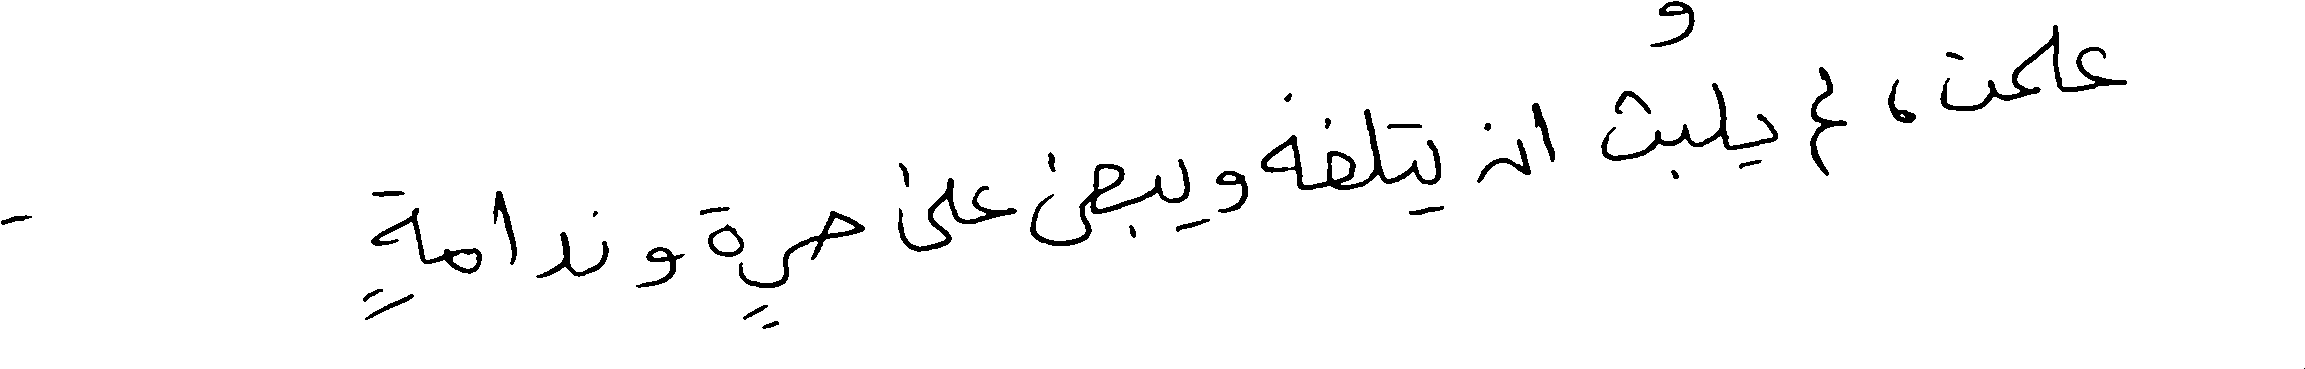 علمت، لم يلبثُ ان يتلفه ويبقى على حسرةٍ وندامةٍ